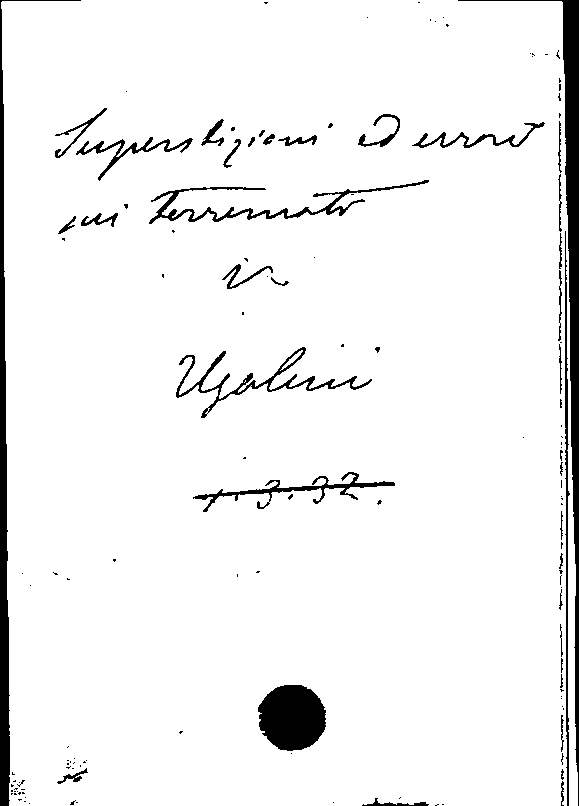 Superstizioni ed errori
sui terremoti
in
Ugolini
1.3.32.